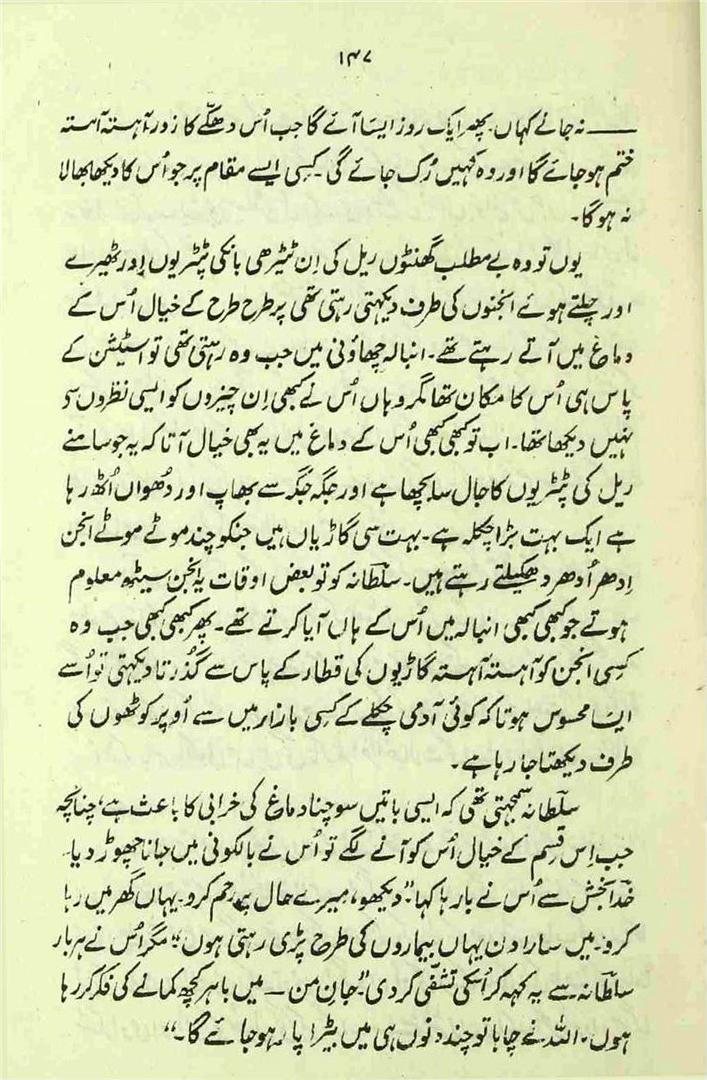 ۱۴۷
—— نہ جانے کہاں۔ پھر ایک روز ایسا آئے گا جب اُس دھکّے کا زور آہستہ آہستہ
ختم ہو جائے گا اور وہ کہیں رُک جائے گی۔ کسی ایسے مقام پر جو اُس کا دیکھا بھالا
نہ ہوگا۔
یوں تو وہ بے مطلب گھنٹوں ریل کی اِن ٹیڑھی بانکی پٹڑیوں اور ٹھیرے
اور چلتے ہوئے انجنوں کی طرف دیکھتی رہتی تھی پر طرح طرح کے خیال اُس کے
دماغ میں آتے رہتے تھے۔ انبالہ چھاؤنی میں جب وہ رہتی تھی تو اسٹیشن کے
پاس ہی اُس کا مکان تھا مگر وہاں اُس نے کبھی اِن چیزوں کو ایسی نظروں سے
نہیں دیکھا تھا۔ اب تو کبھی کبھی اُس کے دماغ میں یہ بھی خیال آتا کہ یہ جو سامنے
ریل کی پٹڑیوں کا جال سا بچھا ہے اور جگہ جگہ سے بھاپ اور دُھواں اُٹھ رہا
ہے ایک بہت بڑا چکلہ ہے۔ بہت سی گاڑیاں ہیں جنکو چند موٹے موٹے انجن
اِدھر اُدھر دھکیلتے رہتے ہیں۔ سلطانہ کو تو بعض اوقات یہ انجن سیٹھ معلوم
ہوتے جو کبھی کبھی انبالہ میں اُس کے ہاں آیا کرتے تھے۔ پھر کبھی کبھی جب وہ
کسی انجن کو آہستہ آہستہ گاڑیوں کی قطار کے پاس سے گذرتا دیکھتی تو اُسے
ایسا محسوس ہوتا کہ کوئی آدمی چکلے کے کسی بازار میں سے اُوپر کوٹھوں کی
طرف دیکھتا جا رہا ہے۔
سلطانہ سمجھتی تھی کہ ایسی باتیں سوچنا دماغ کی خرابی کا باعث ہے، چنانچہ
جب اِس قسم کے خیال اُس کو آنے لگے تو اُس نے بالکونی میں جانا چھوڑ دیا۔
خدا بخش سے اُس نے بارہا کہا ”دیکھو، میرے حال پہ رحم کرو۔ یہاں گھر میں رہا
کرو۔ میں سارا دن یہاں بیماروں کی طرح پڑی رہتی ہوں“ مگر اُس نے ہر بار
سلطانہ سے یہ کہہ کر اُسکی تشفّی کر دی ”جانِ من – میں باہر کچھ کمانے کی فکر کر رہا
ہوں۔ اللہ نے چاہا تو چند دنوں ہی میں بیڑا پار ہو جائے گا۔“